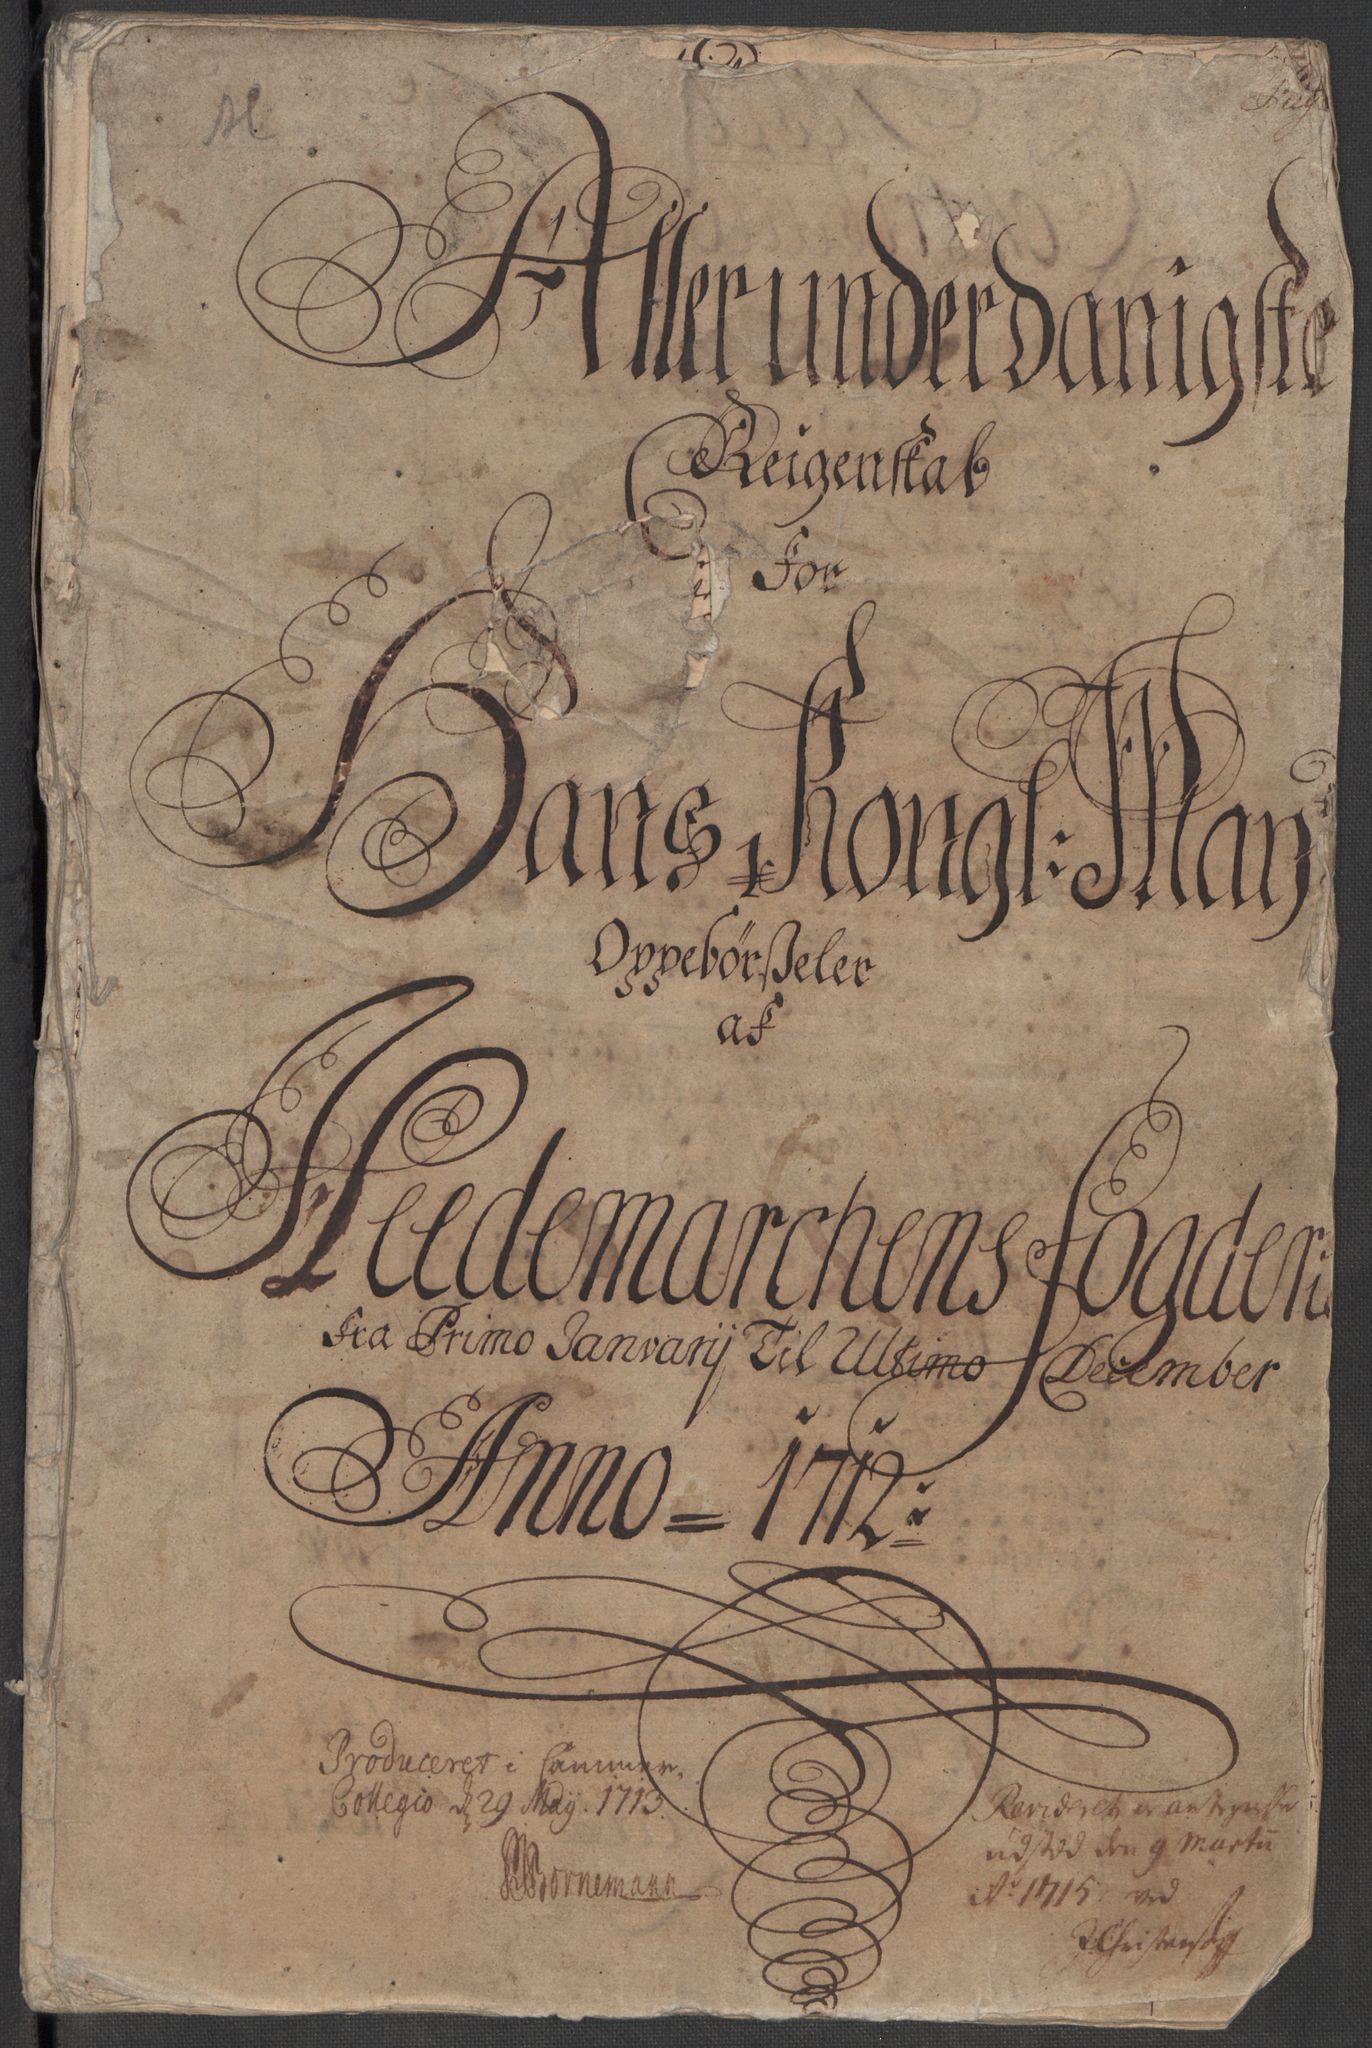 Allerunderdanigste
Reigenskab
For
Hans Kongl: May
Oppebörßeler
af
Heedemarchens fogderi
fra Primo Janvarij Til Ultimo December
Anno = 1712:
Produceret i Cammer
Collegio d 29 Maij. 1713.
Bornemann
Revideret er antegnelse
udsted den 9 Martii
Ao 1715. ved